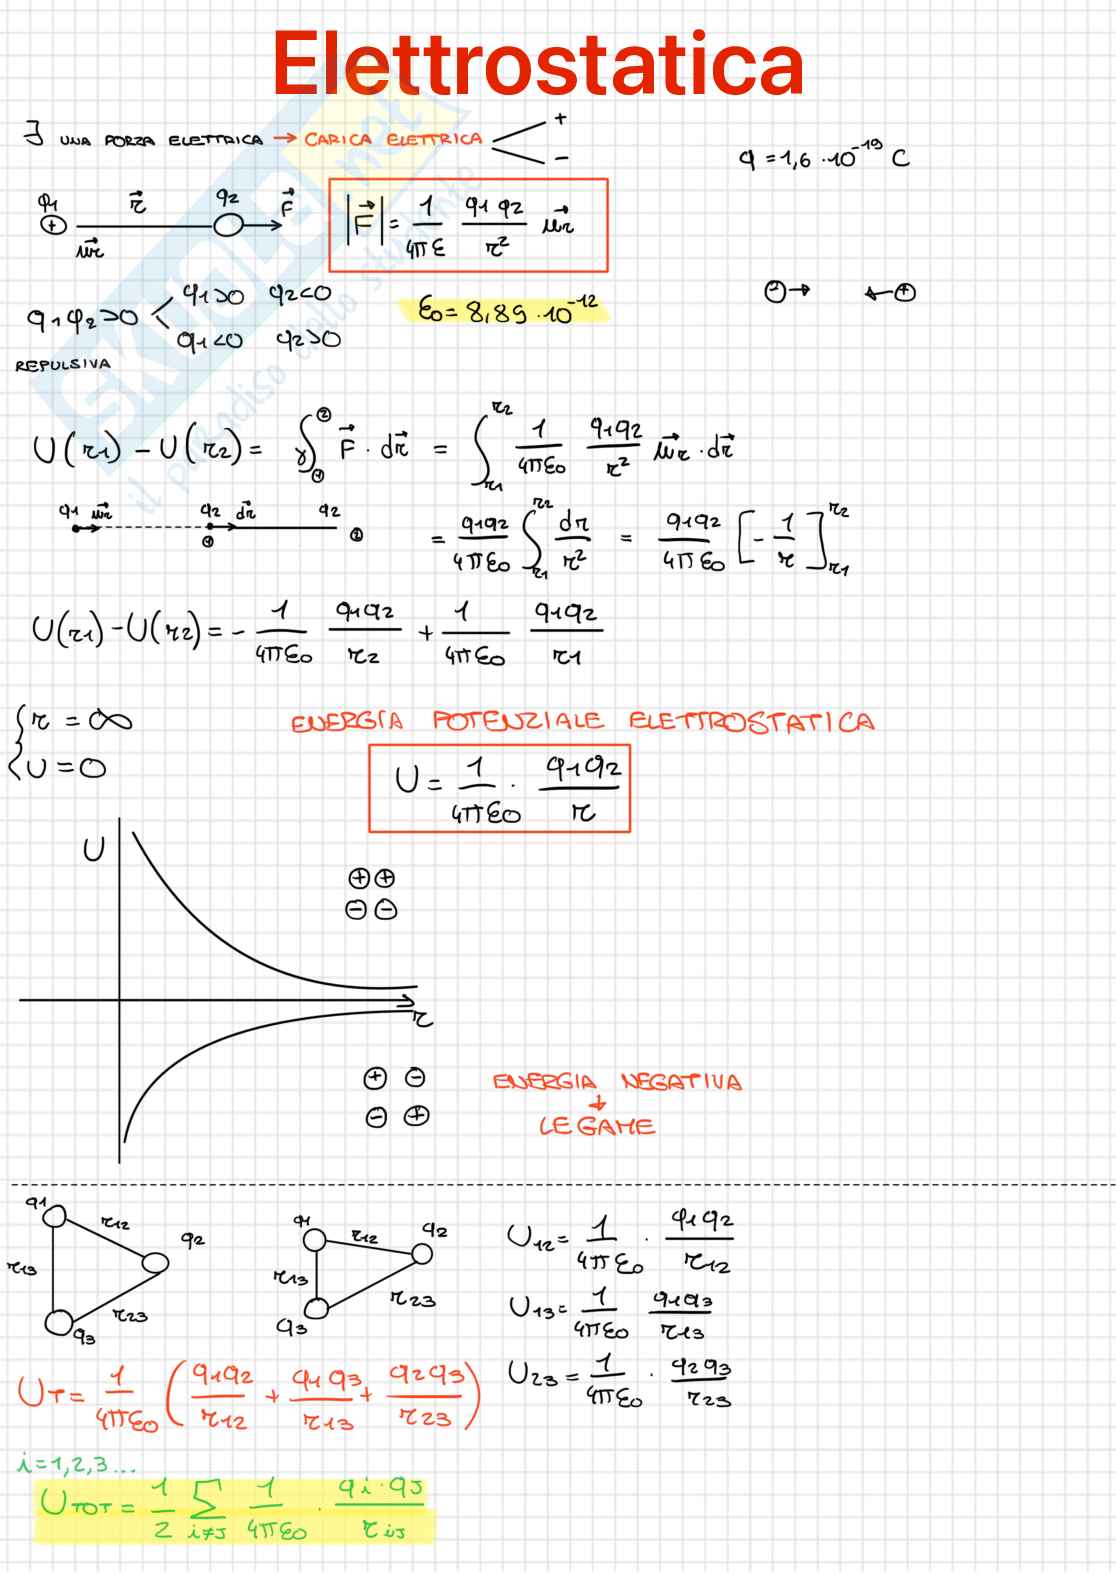 Elettrostatica
∃ UNA FORZA ELETTRICA → CARICA ELETTRICA + −
q = 1,6 · 10^-19 C
q1 + r⃗ q2 F⃗
u⃗r
|F⃗| = 1/4πε q1 q2/r² u⃗r
q1q2>0 q1>0 q2<0
q1<0 q2>0
REPULSIVA
ε0 = 8,85 · 10^-12
− → ← +
U(r1) − U(r2) = γ∫①^② F⃗ · dr⃗ = ∫r1^r2 1/4πε0 q1q2/r² u⃗r · dr⃗
q1 u⃗r q2 dr⃗ q2
① ②
= q1q2/4πε0 ∫r1^r2 dr/r² = q1q2/4πε0 [−1/r]r1^r2
U(r1) − U(r2) = − 1/4πε0 q1q2/r2 + 1/4πε0 q1q2/r1
{ r = ∞
U = 0
ENERGIA POTENZIALE ELETTROSTATICA
U = 1/4πε0 · q1q2/r
U
⊕ ⊕
⊖ ⊖
r
⊕ ⊖
⊖ ⊕
ENERGIA NEGATIVA
↓
LEGAME
q1 r12 q2 r13 r23 q3
q1 r12 q2 r13 r23 q3
U12 = 1/4πε0 · q1q2/r12
U13 = 1/4πε0 q1q3/r13
U23 = 1/4πε0 · q2q3/r23
UT = 1/4πε0 (q1q2/r12 + q1q3/r13 + q2q3/r23)
i = 1,2,3...
UTOT = 1/2 Σ i≠J 1/4πε0 · qi·qJ/riJ
SKUOLA.net
il paradiso dello studente